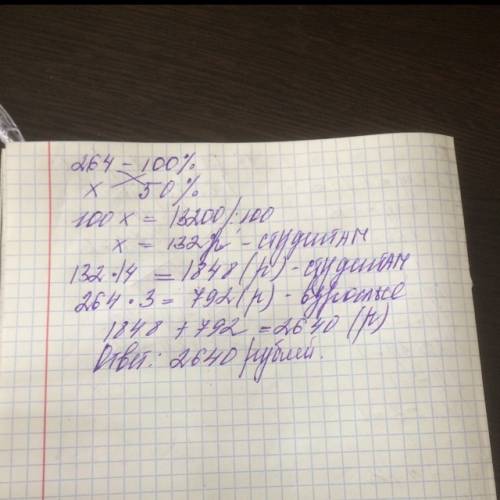 264 - 100%
x 50%
100 x = 13200 /:100
x = 132 р - студентам
132 · 14 = 1848 (р) - студентам
264 · 3 = 792 (р) - взрослые
1848 + 792 = 2640 (р)
Ответ: 2640 рублей.